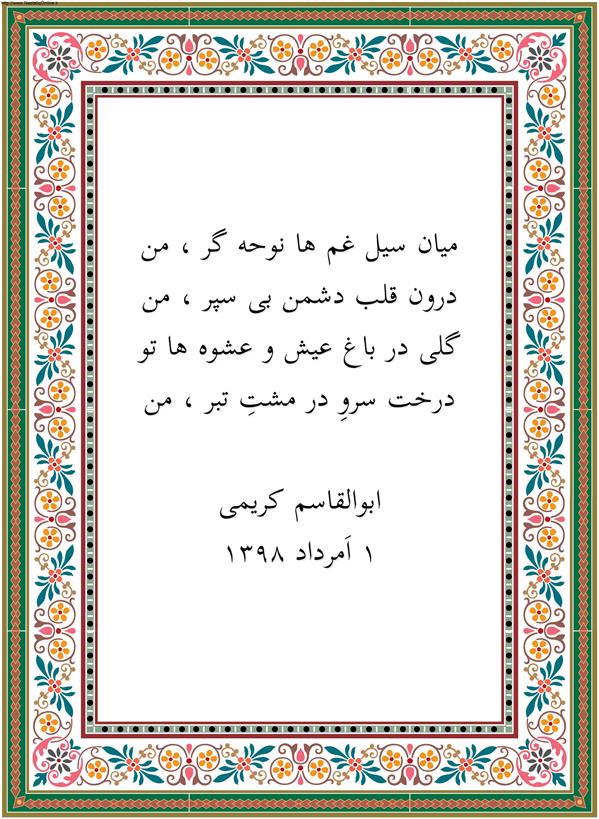 http://www.NastaliqOnline.ir
میان سیل غم ها نوحه گر ، من
درون قلب دشمن بی سپر ، من
گلی در باغ عیش و عشوه ها تو
درخت سروِ در مشتِ تبر ، من
ابوالقاسم کریمی
۱ اَمرداد ۱۳۹۸